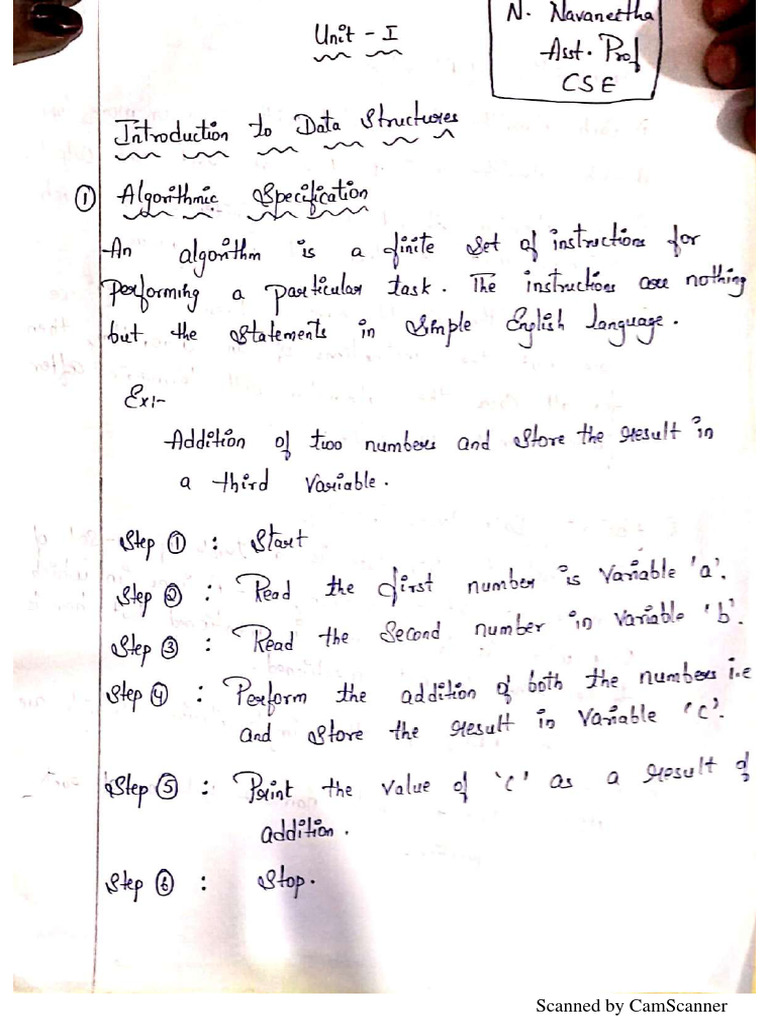 Unit - I
N. Navaneetha
Asst. Prof
CSE
Introduction to Data Structures
① Algorithmic Specification
An algorithm is a finite set of instructions for
performing a particular task. The instructions are nothing
but, the statements in simple English language.
Ex:-
Addition of two numbers and store the result in
a third variable.
Step ① : Start
Step ② : Read the first number is variable 'a'.
Step ③ : Read the second number in variable 'b'.
Step ④ : Perform the addition of both the numbers i.e
and store the result in variable 'c'.
Step ⑤ : Print the value of 'c' as a result of
addition.
Step ⑥ : Stop.
Scanned by CamScanner